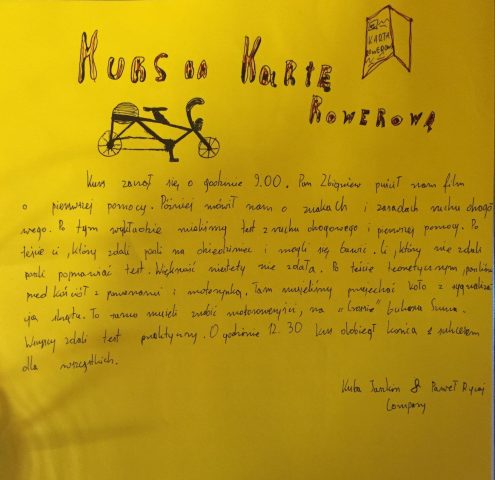 Kurs na Kartę
Rowerową
KARTA
ROWEROWA
Kurs zaczął się o godzinie 9.00. Pan Zbigniew puścił nam film
o pierwszej pomocy. Później mówił nam o znakach i zasadach ruchu drogo
wego. Po tym wykładzie mieliśmy test z ruchu drogowego i pierwszej pomocy. Po
teście ci, który zdali poszli na dziedziniec i mogli się bawić. Ci, który nie zdali
poszli poprawiać test. Większość niestety nie zdała. Po teście teoretycznym, poszliśmy
przed kościół z rowerami i motorynką. Tam musieliśmy przejechać koło z sygnaliza
cją skrętu. To samo musieli zrobić motorowerzyści, na
Wszyscy zdali test praktyczny. O godzinie 12.30 kurs dobiegł końca z sukcesem
dla wszystkich.
Kuba & Paweł
Company